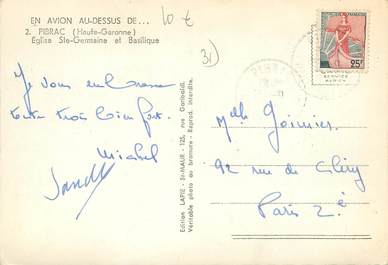 EN AVION AU-DESSUS DE...
2. PIBRAC (Haute-Garonne)
Eglise Ste-Germaine et Basilique
10 €
31
Je vous embrasse
toute trois bien fort.
Michel
Edition LAPIE - St-MAUR - 125, rue Garibaldi.
Véritable photo au bromure - Reprod. interdite.
25F
Mlle Goinier
92 rue de Cléry
Paris 2è